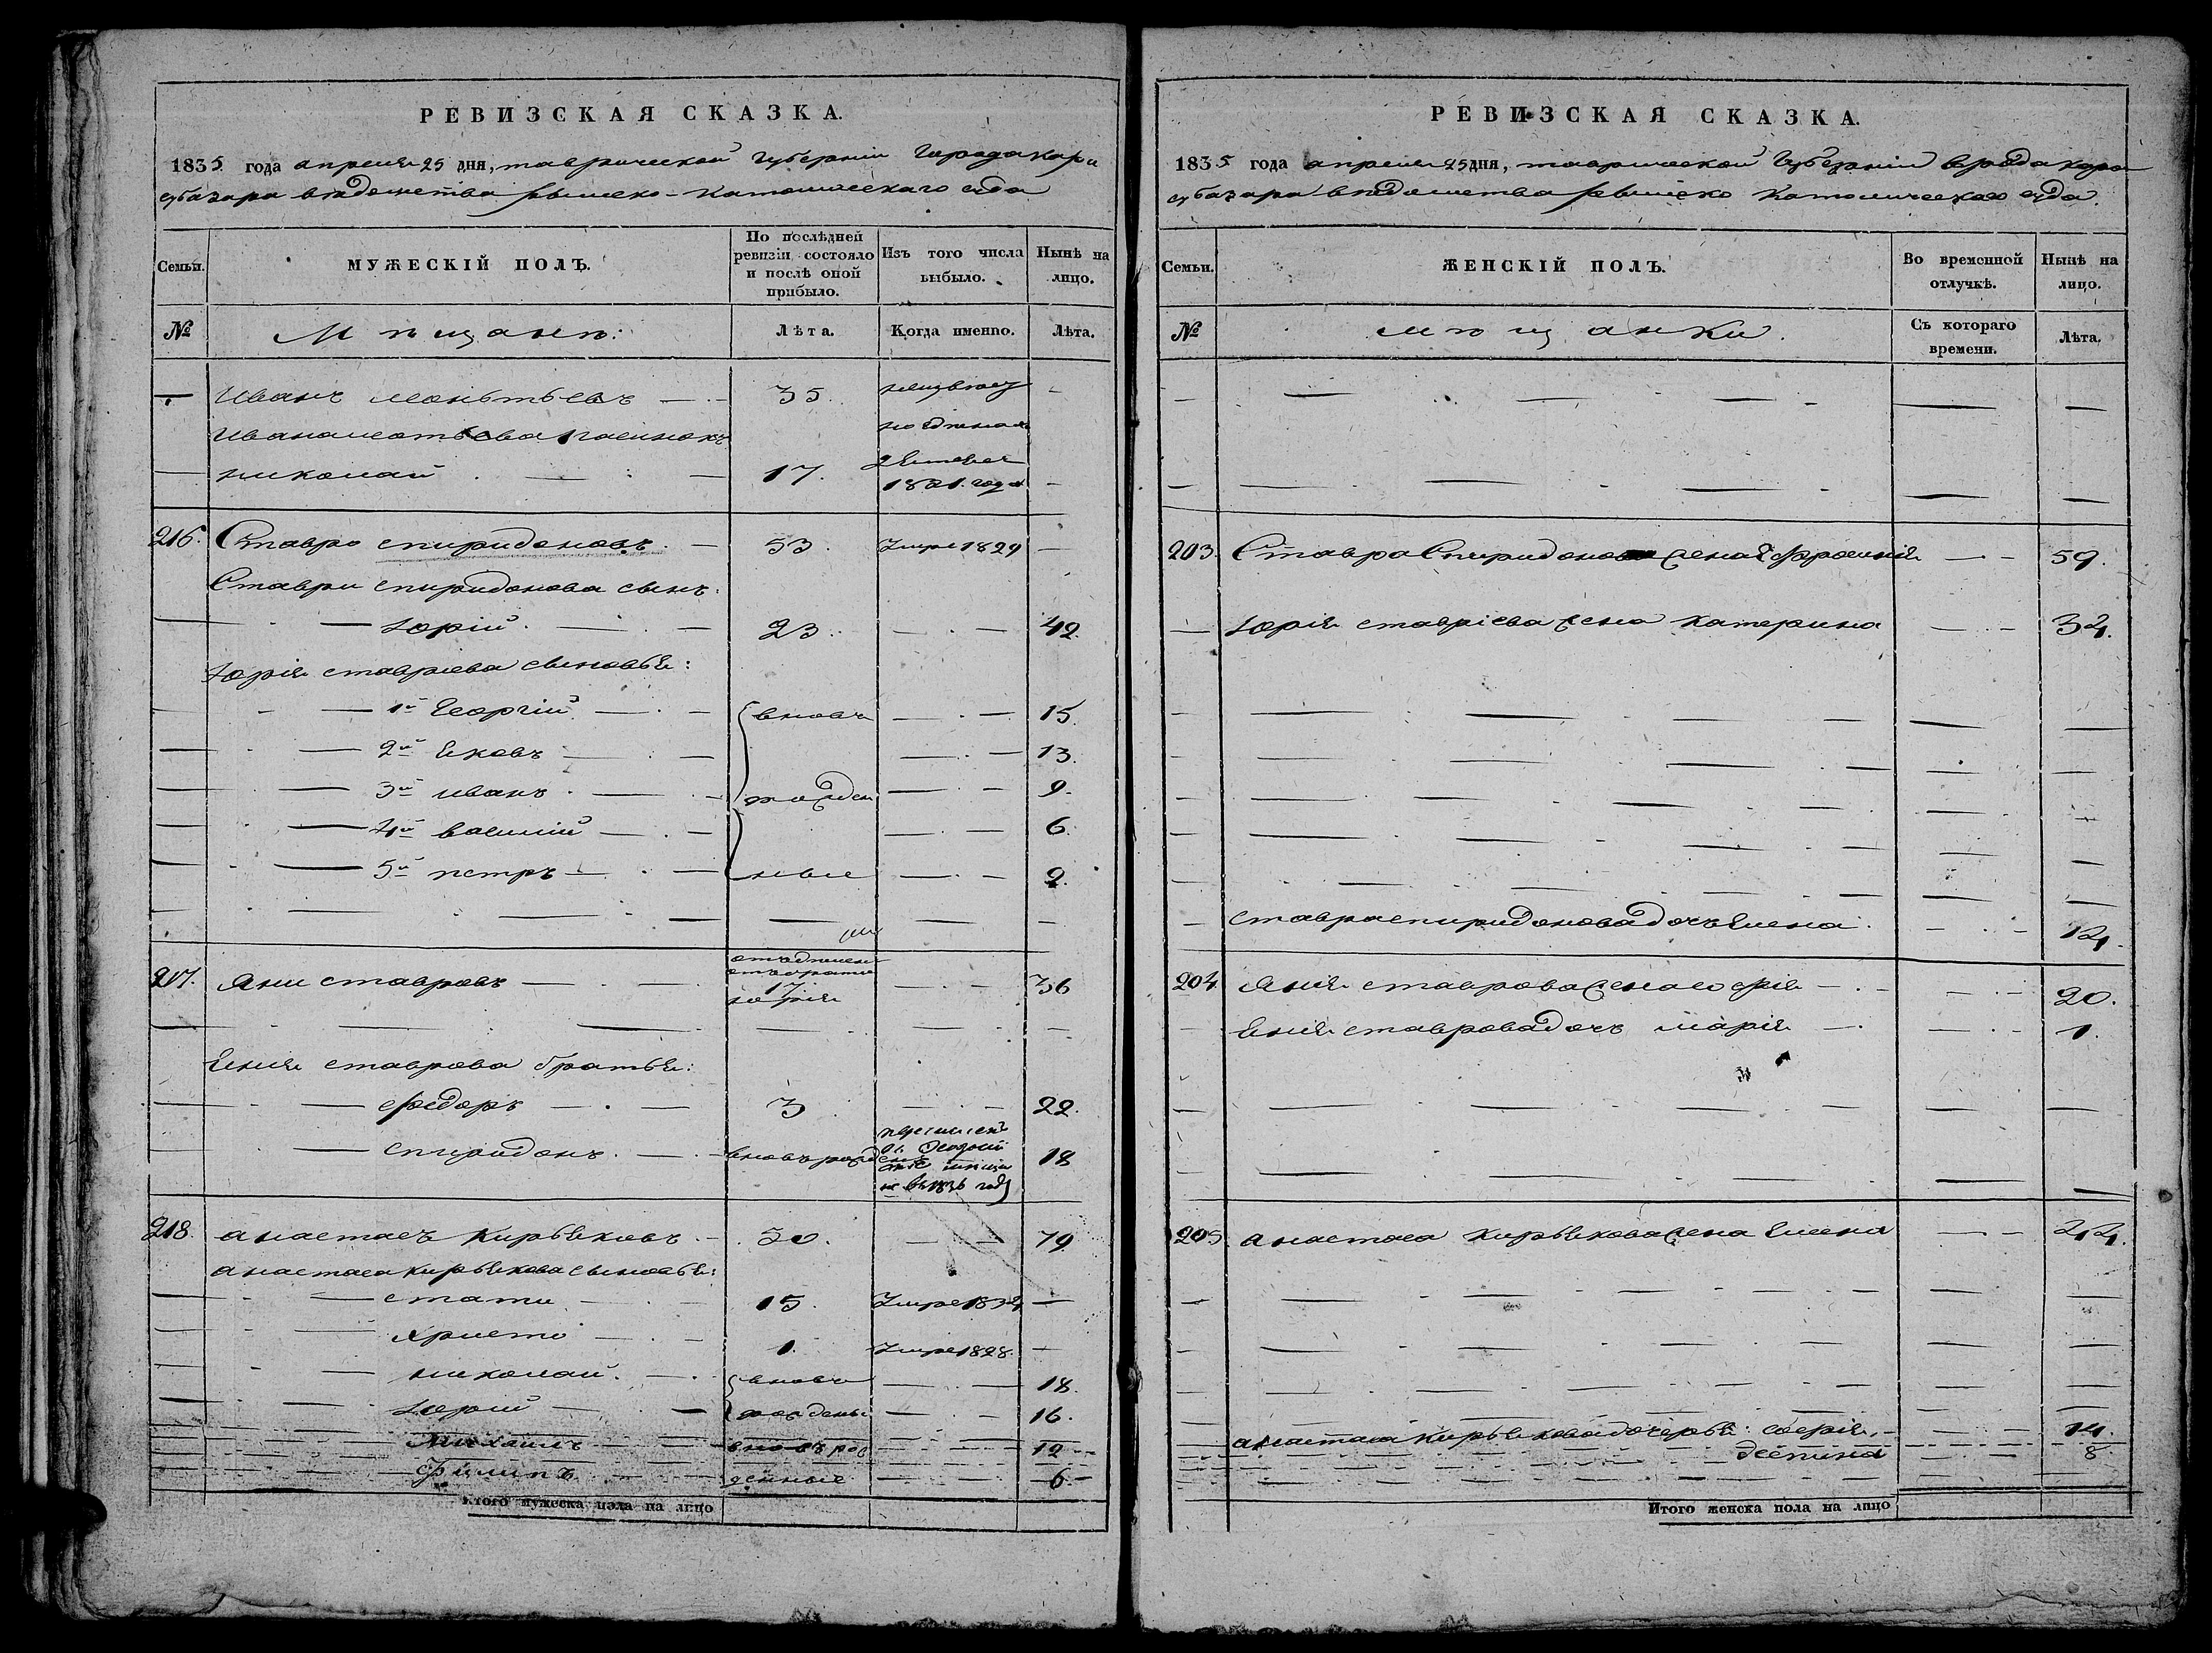 РЕВИЗСКАЯ СКАЗКА.
1835 года апреля 25 дня, таврической губернии города кара
субазара ведомства римско-католическаго суда
Семьи.
МУЖЕСКІЙ ПОЛЪ.
По послѣдней ревизіи состояло и послѣ оной прибыло.
Изъ того числа выбыло.
Нынѣ на лицо.
№
Мѣщане:
Лѣта.
Когда именно.
Лѣта.
Иванъ 35.
Ивана
николай 17. 1821. года
216. Ставро спиридоновъ 53. Умре 1829
Ставри спиридонова сынъ:
Юрій. 23. 42.
Юрія ставріева сыновья:
1й Георгій вновь 15.
2й Яковъ 13.
3й иванъ рожден 9.
4й василій 6.
5й петръ ные 2.
217. Яни ставровъ 17 36
юрія
Янія ставрова братья:
ѳедоръ 3 22.
спиридонъ. вновь рожд 18
218. анастасъ Кирьяковъ 70. 79
анастаса кирьякова сыновья:
стати 15. Умре 1834
христо 1. Умре 1828.
николай. вновь 18.
Юрій рожденые 16.
Михаилъ вновь рож 12
Филипъ денные 6
Итого мужеска пола на лицо
РЕВИЗСКАЯ СКАЗКА.
1835 года апреля 25 дня, таврической губерніи города кара
субазара ведомства римско католическаго суда.
Семьи.
ЖЕНСКІЙ ПОЛЪ.
Во временной отлучкѣ.
Нынѣ на лицо.
№
мѣщанки.
Съ котораго времени.
Лѣта.
203. Ставра Спиридонова жена 59.
Юрія ставріева жена катерина 34.
ставра спиридонова дочь Елена. 14.
204. Янія ставрова жена софія 20.
Янія ставрова дочь марія 1.
205. анастаса кирьякова жена Елена 44.
анастаса кирьякова дочерья: софія, 14.
деспина 8
Итого женска пола на лицо